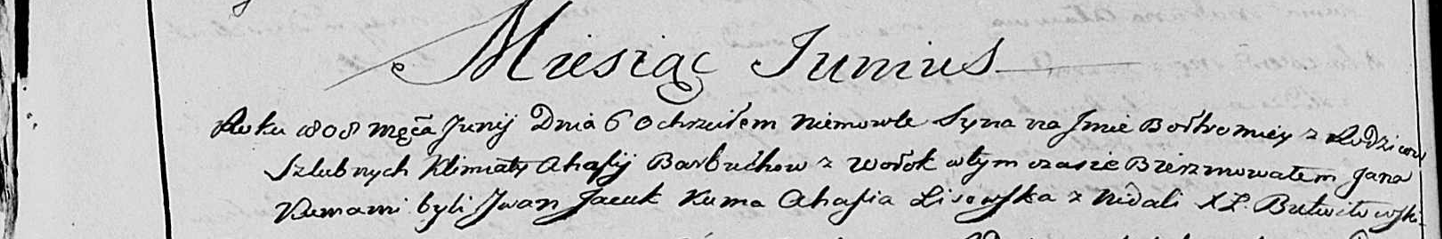 Miesiąc Junius
Roku 1808 męca Junij Dnia 6 Ochrzciłem Niemowle Syna na Jmie Bołtromiey z Rodzicow
Szlubnych Klimiaty Ahafij Barbuchow z Wołok wtym czasie Bierzmowałem Jana
Kumami byli Jwan Jacuk Kuma Ahafia Lisowska z Nidali XL. Butwiłowski